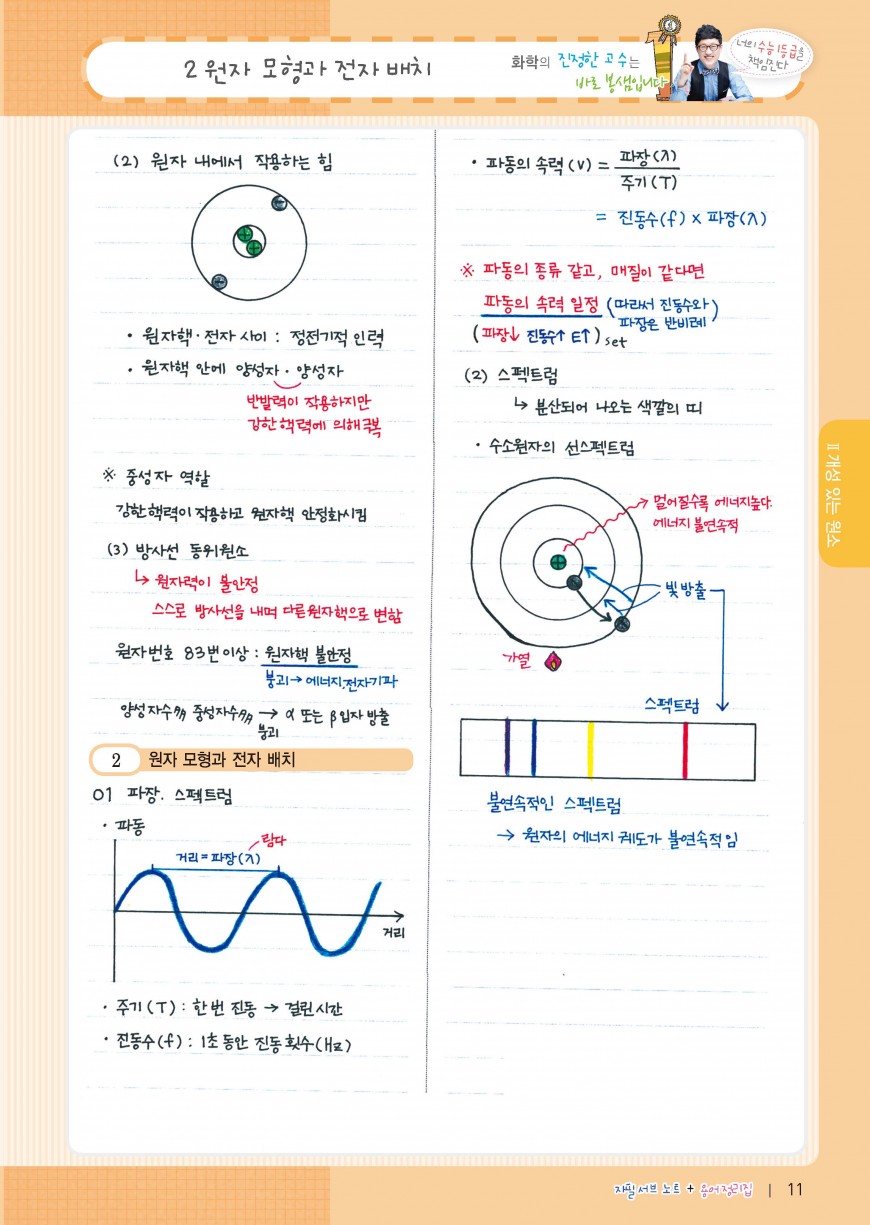 2 원자 모형과 전자 배치
화학의 진정한 고수는
바로 봉샘입니다
너의 수능1등급을
책임진다
(2) 원자 내에서 작용하는 힘
· 원자핵·전자 사이 : 정전기적 인력
· 원자핵 안에 양성자 · 양성자
반발력이 작용하지만
강한 핵력에 의해 극복
※ 중성자 역할
강한 핵력이 작용하고 원자핵 안정화시킴
(3) 방사선 동위원소
↳ 원자력이 불안정
스스로 방사선을 내며 다른 원자핵으로 변함
원자번호 83번 이상 : 원자핵 불안정
붕괴 → 에너지, 전자기파
양성자수 중성자수 → α 또는 β 입자 방출
붕괴
2 원자 모형과 전자 배치
01 파장. 스펙트럼
· 파동
람다
거리 = 파장(λ)
거리
· 주기(T) : 한 번 진동 → 걸린 시간
· 진동수(f) : 1초 동안 진동 횟수(Hz)
· 파동의 속력(v) = 파장(λ)
주기(T)
= 진동수(f) x 파장(λ)
※ 파동의 종류 같고, 매질이 같다면
파동의 속력 일정 (따라서 진동수와
파장은 반비례)
(파장↓ 진동수↑ E↑) set
(2) 스펙트럼
↳ 분산되어 나오는 색깔의 띠
· 수소원자의 선스펙트럼
멀어질수록 에너지높다.
에너지 불연속적
빛 방출
가열
스펙트럼
불연속적인 스펙트럼
→ 원자의 에너지 궤도가 불연속적임
II 개성 있는 원소
자필 서브 노트 + 용어정리집 | 11